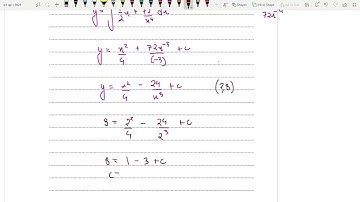 y = ∫ ½x + 72/x⁴ dx
72x⁻⁴
y = x²/4 + 72x⁻³/(-3) + c
y = x²/4 - 24/x³ + c (2,8)
8 = 2²/4 - 24/2³ + c
8 = 1 - 3 + c
c =